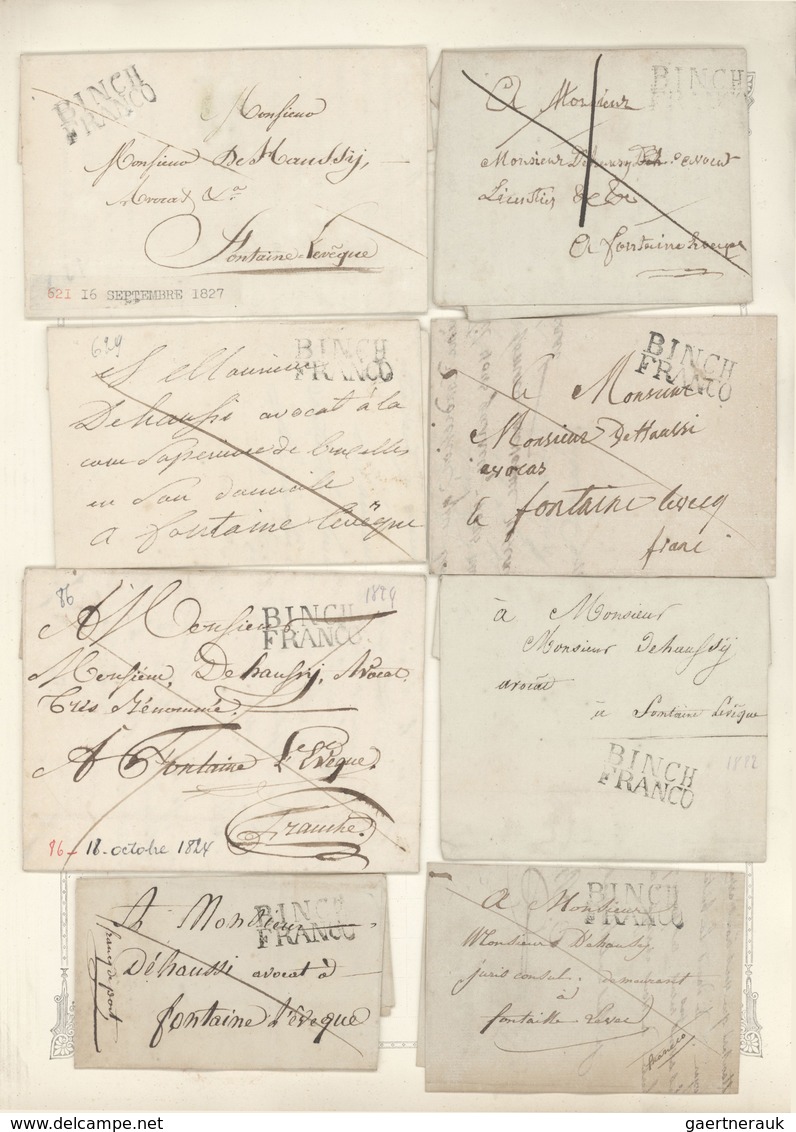 BINCH
FRANCO
Monsieur
Monsieur De Haussij,
Avocat &a
Fontaine-Levêque
621 16 SEPTEMBRE 1827
BINCH
FRANCO
A Monsieur
Monsieur Dehaussy avocat
Licentier
A fontaine
629
BINCH
FRANCO
A Monsieur
Dehaussi avocat à la
cour superieure de bruxelles
en son domicile
a fontaine levêque
BINCH
FRANCO
à Monsieur
Monsieur DeHaussi
avocas
à fontaine levecq
franc
86 1824
BINCH
FRANCO
A Monsieur
Monsieur, Dehaussij, Avocat
Très Rénommé.
A Fontaine L'Evêque.
Franche.
86 - 18 - octobre 1824
à Monsieur
Monsieur Dehaussij
avocat
à Fontaine Levêque
BINCH
FRANCO
1812
BINCH
FRANCO
A Monsieur
Déhaussi avocat à
fontaine l'éveque
francq de port
BINCH
FRANCO
A Monsieur
Monsieur Dehaussy
juris consul demeurant
à
fontaine
franco
gaertnerauk.com